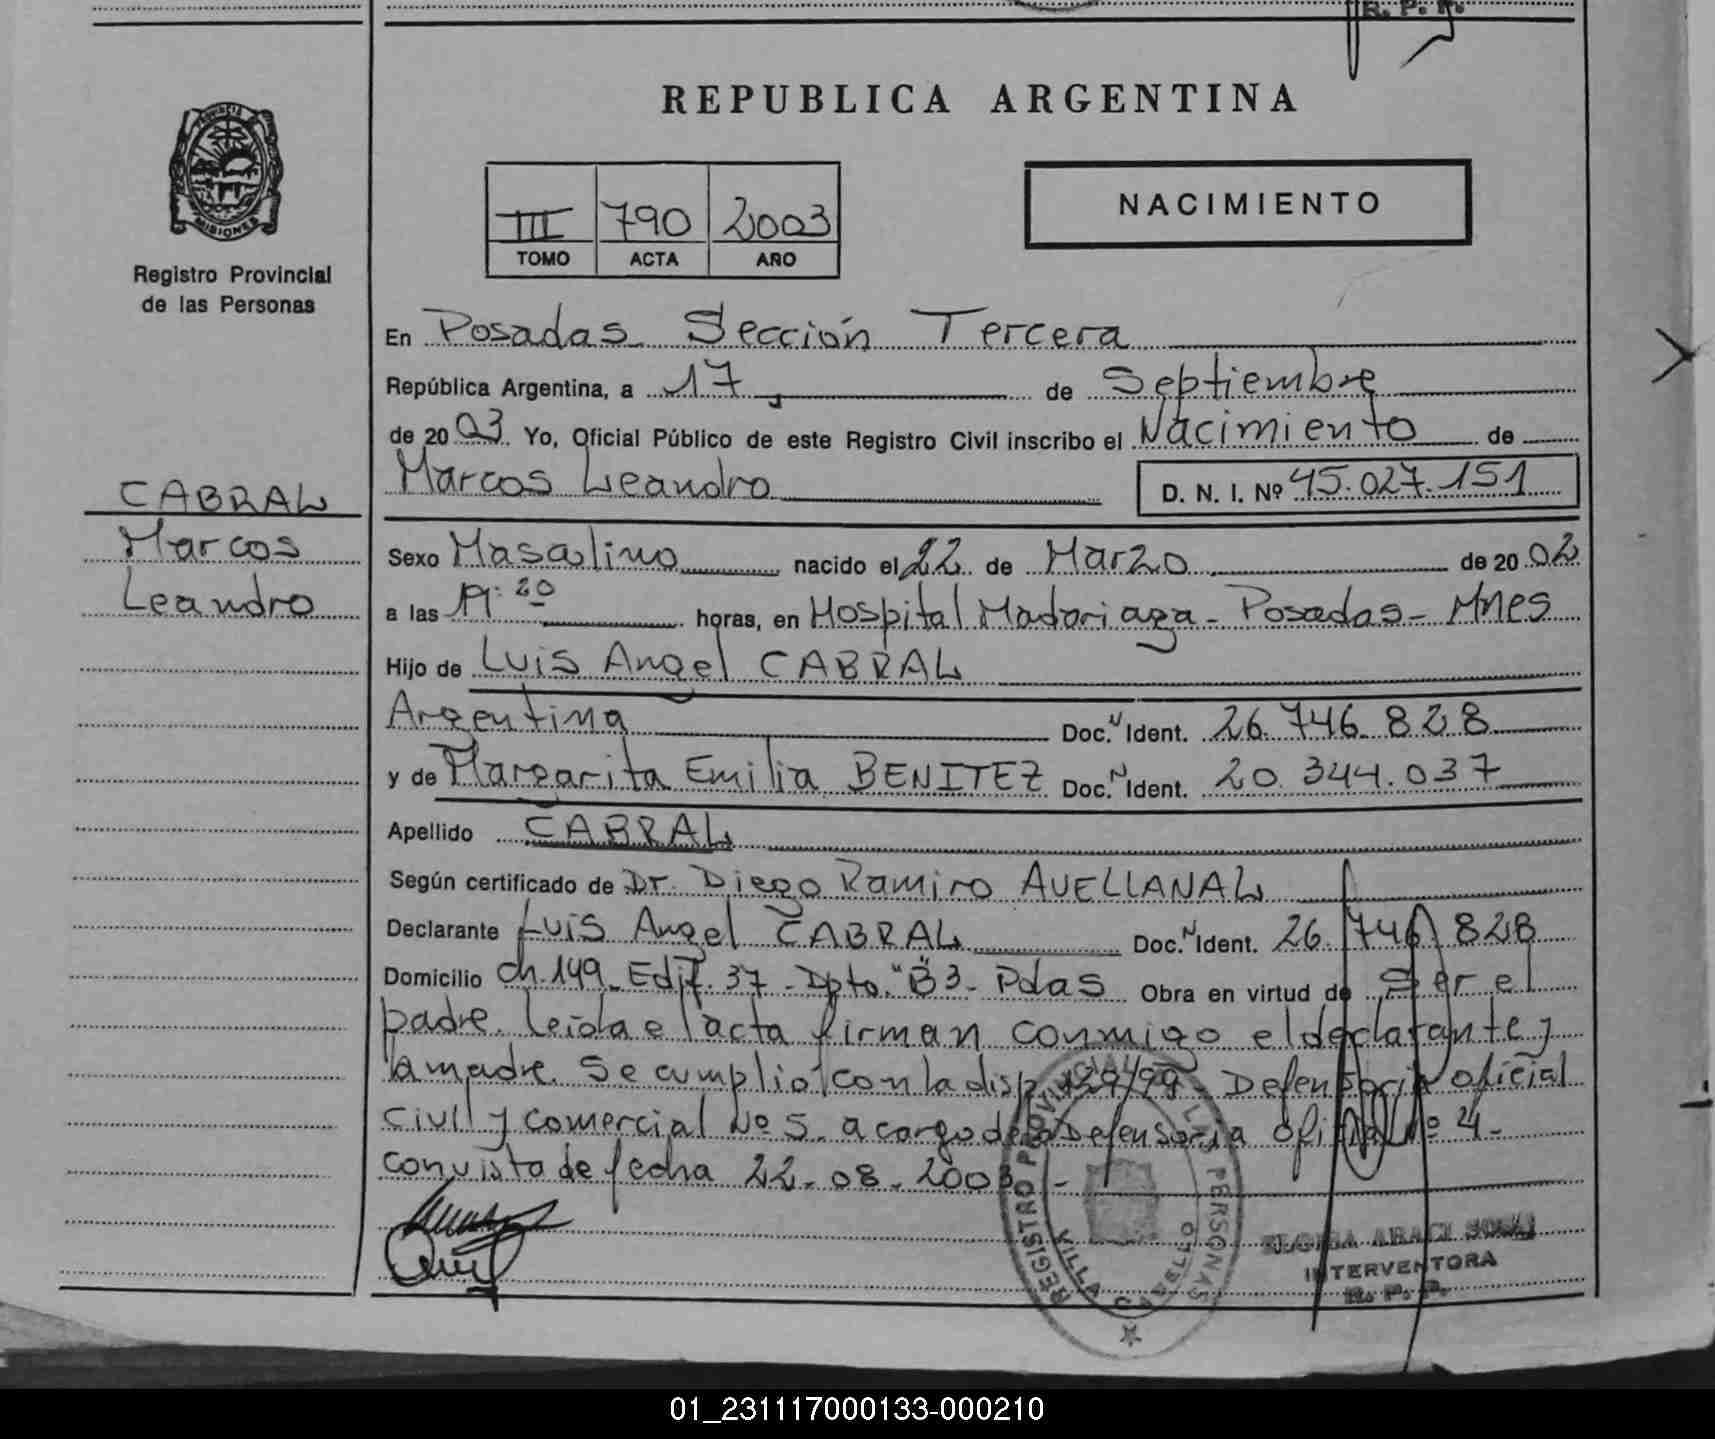 R. P. P.
REPUBLICA ARGENTINA
PROVINCIA
MISIONES
Registro Provincial
de las Personas
III 790 2003
TOMO ACTA AÑO
NACIMIENTO
En Posadas Sección Tercera
República Argentina, a 17 de Septiembre
de 2003 Yo, Oficial Público de este Registro Civil inscribo el Nacimiento de
Marcos Leandro D. N. I. Nº 45.027.151
CABRAL
Marcos
Leandro
Sexo Masculino nacido el 22 de Marzo de 2002
a las horas, en Hospital Madariaga - Posadas - Mnes
Hijo de Luis Angel CABRAL
Argentina Doc. N Ident. 26.746.828
y de Margarita Emilia BENITEZ Doc. N Ident. 20.344.037
Apellido CABRAL
Según certificado de Dr. Diego Ramiro AVELLANAL
Declarante Luis Angel CABRAL Doc. N Ident. 26.746.828
Domicilio ch. 149 - Edif. 37 - Dpto. "B" 3 - Pdas Obra en virtud de Ser el
padre. leida el acta firman conmigo el declarante y
la madre. Se cumplió con la disp. 129/99 - Defensoria oficial
civil y comercial Nº 5. a cargo de la Defensoria Oficial Nº 4 -
con vista de fecha 22-08-2003 -
REGISTRO PROVINCIAL DE LAS PERSONAS
VILLA CABELLO
INTERVENTORA
R. P. P.
01_231117000133-000210